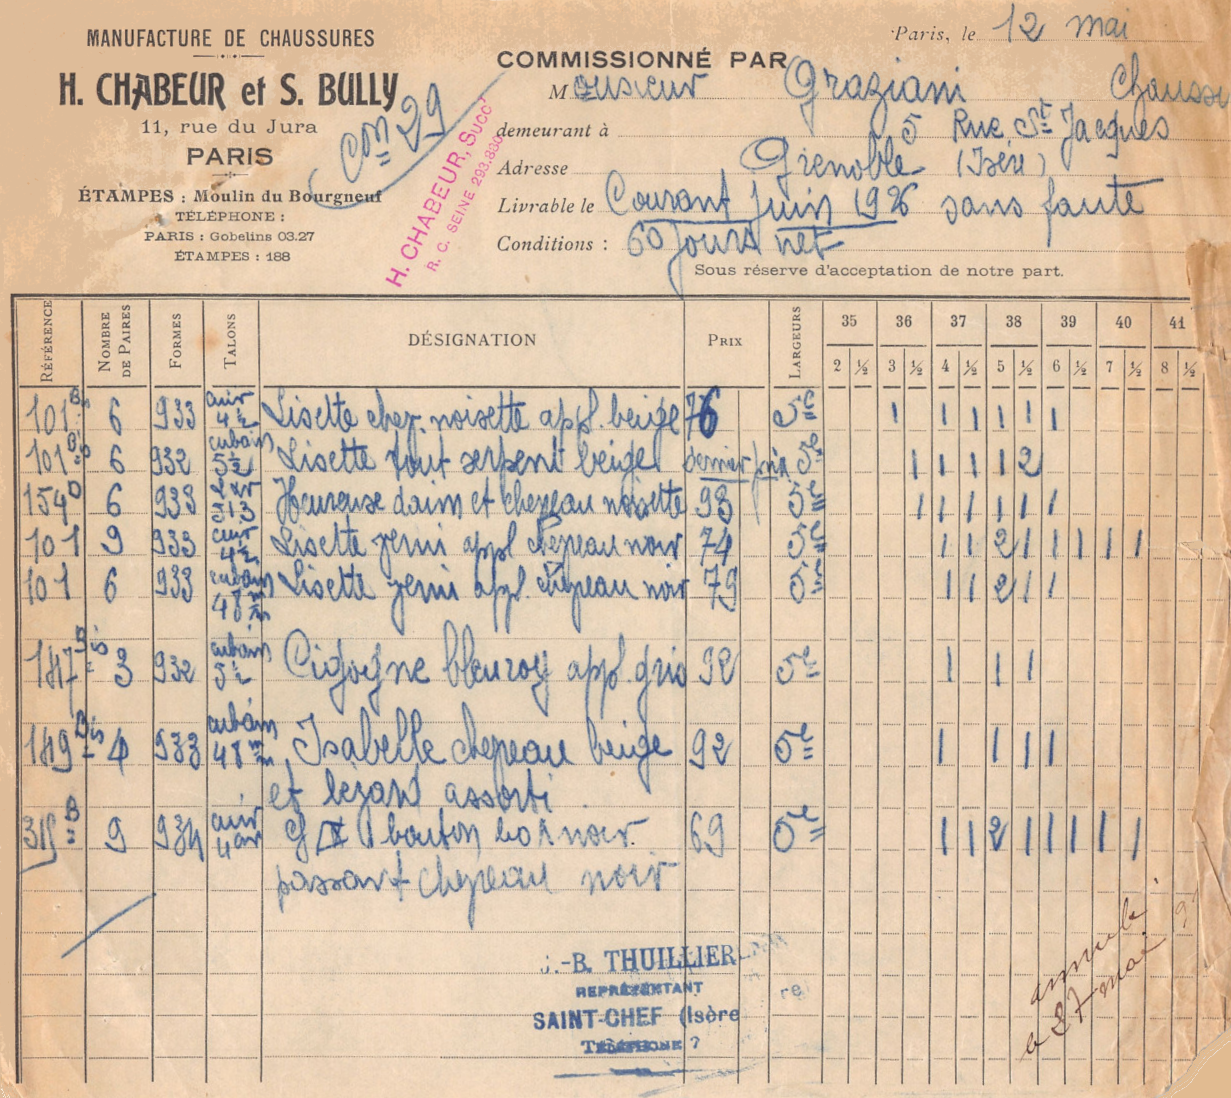 MANUFACTURE DE CHAUSSURES
H. CHABEUR et S. BULLY
11, rue du Jura
PARIS
ÉTAMPES : Moulin du Bourgneuf
TÉLÉPHONE :
PARIS : Gobelins 03.27
ÉTAMPES : 188
Con 29
H. CHABEUR, Succ
R. C. SEINE 293.830
Paris, le 12 mai
COMMISSIONNÉ PAR
Monsieur Graziani Chauss
demeurant à 5 Rue St Jacques
Adresse Grenoble (Isère)
Livrable le Courant Juin 1926 sans faute
Conditions : 60 jours net
Sous réserve d'acceptation de notre part.
RÉFÉRENCE NOMBRE DE PAIRES FORMES TALONS DÉSIGNATION PRIX LARGEURS 35 36 37 38 39 40 41
2 ½ 3 ½ 4 ½ 5 ½ 6 ½ 7 ½ 8 ½
101 Bis 6 933 cuir 4 ½ Lisette chev. noisette appl. beige 76 5e 1 1 1 1 1 1
101 Bis 6 932 cubain 5 ½ Lisette tout serpent beige dernier prix 5e 1 1 1 1 2
154 6 933 Heureuse daim et chevreau noisette 93 5e 1 1 1 1 1 1
101 9 933 cuir 4 ½ Lisette verni appl chevreau noir 74 5e 1 1 2 1 1 1 1 1
101 6 933 cubain 48 m/m Lisette verni appl. chevreau noir 79 5e 1 1 2 1 1
147 Bis 3 932 cubain 5 ½ Cigogne bleu roy appl. gris 92 5e 1 1 1
149 Bis 4 933 cubain 48 m/m Isabelle chevreau beige 92 5e 1 1 1 1
et lézard assorti
315 B 9 934 cuir 4 1 bouton box noir. 69 5e 1 1 2 1 1 1 1 1
passant chevreau noir
J.-B. THUILLIER
REPRÉSENTANT
SAINT-CHEF (Isère
TÉLÉPHONE 7
annulé
le 27 mai